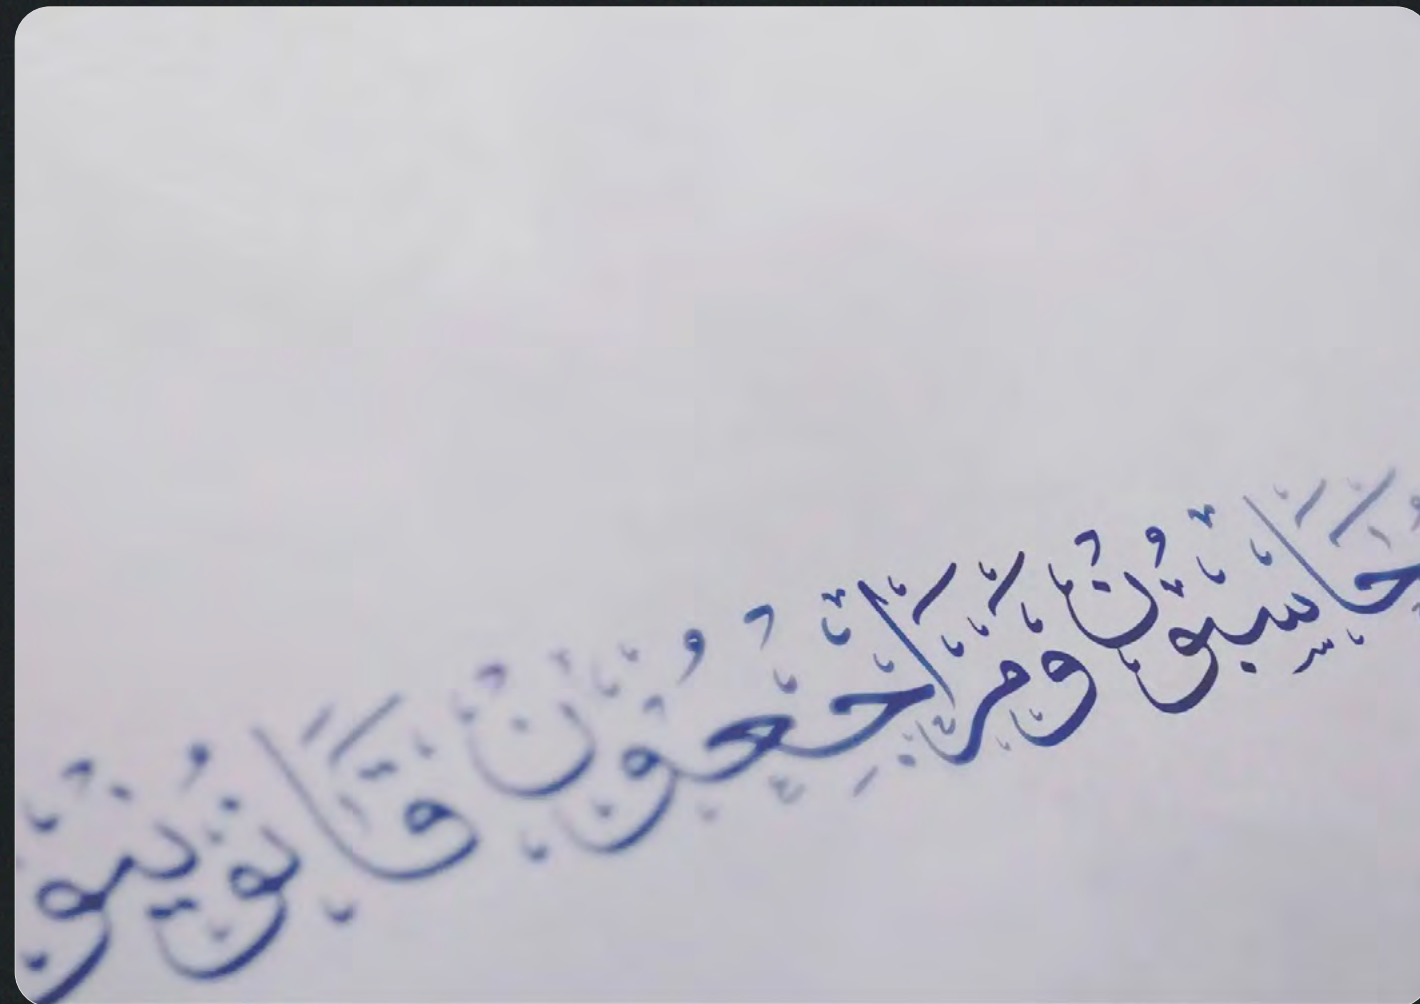 حَاسِبُونَ وَمُرَاجِعُونَ قَانُونِيُّو